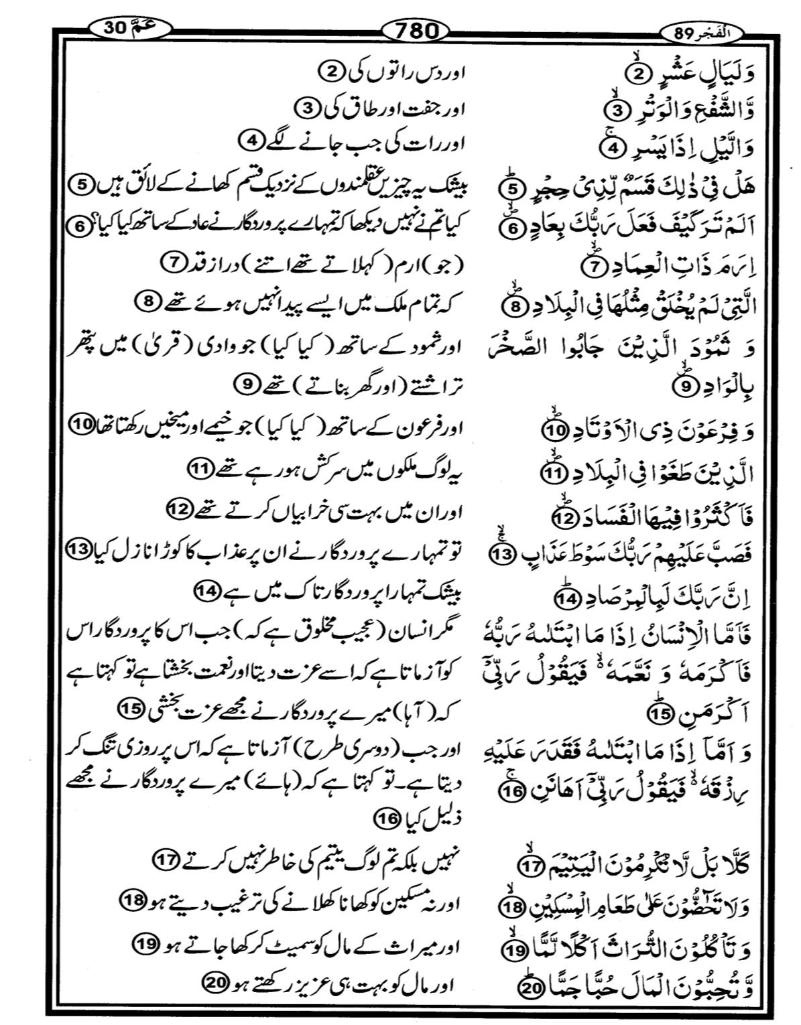 الْفَجْر 89
780
عَمَّ 30
وَلَيَالٍ عَشْرٍ ②
اور دس راتوں کی ②
وَّالشَّفْعِ وَالْوَتْرِ ③
اور جفت اور طاق کی ③
وَالَّيْلِ اِذَا يَسْرِ ④
اور رات کی جب جانے لگے ④
هَلْ فِيْ ذٰلِكَ قَسَمٌ لِّذِيْ حِجْرٍ ⑤
بیشک یہ چیزیں عقلمندوں کے نزدیک قسم کھانے کے لائق ہیں ⑤
اَلَمْ تَرَ كَيْفَ فَعَلَ رَبُّكَ بِعَادٍ ⑥
کیا تم نے نہیں دیکھا کہ تمہارے پروردگار نے عاد کے ساتھ کیا کیا؟ ⑥
اِرَمَ ذَاتِ الْعِمَادِ ⑦
(جو) ارم (کہلاتے تھے اتنے) دراز قد ⑦
الَّتِيْ لَمْ يُخْلَقْ مِثْلُهَا فِي الْبِلَادِ ⑧
کہ تمام ملک میں ایسے پیدا نہیں ہوئے تھے ⑧
وَ ثَمُوْدَ الَّذِيْنَ جَابُوا الصَّخْرَ
بِالْوَادِ ⑨
اور ثمود کے ساتھ (کیا کیا) جو وادی (قریٰ) میں پتھر
تراشتے (اور گھر بناتے) تھے ⑨
وَ فِرْعَوْنَ ذِي الْاَوْتَادِ ⑩
اور فرعون کے ساتھ (کیا کیا) جو خیمے اور میخیں رکھتا تھا ⑩
الَّذِيْنَ طَغَوْا فِي الْبِلَادِ ⑪
یہ لوگ ملکوں میں سرکش ہو رہے تھے ⑪
فَاَكْثَرُوْا فِيْهَا الْفَسَادَ ⑫
اور ان میں بہت سی خرابیاں کرتے تھے ⑫
فَصَبَّ عَلَيْهِمْ رَبُّكَ سَوْطَ عَذَابٍ ⑬
تو تمہارے پروردگار نے ان پر عذاب کا کوڑا نازل کیا ⑬
اِنَّ رَبَّكَ لَبِالْمِرْصَادِ ⑭
بیشک تمہارا پروردگار تاک میں ہے ⑭
فَاَمَّا الْاِنْسَانُ اِذَا مَا ابْتَلٰىهُ رَبُّهٗ
فَاَكْرَمَهٗ وَ نَعَّمَهٗ فَيَقُوْلُ رَبِّيْٓ
اَكْرَمَنِ ⑮
مگر انسان (عجیب مخلوق ہے کہ) جب اس کا پروردگار اس
کو آزماتا ہے کہ اسے عزت دیتا اور نعمت بخشتا ہے تو کہتا ہے
کہ (آہا) میرے پروردگار نے مجھے عزت بخشی ⑮
وَ اَمَّآ اِذَا مَا ابْتَلٰىهُ فَقَدَرَ عَلَيْهِ
رِزْقَهٗ فَيَقُوْلُ رَبِّيْٓ اَهَانَنِ ⑯
اور جب (دوسری طرح) آزماتا ہے کہ اس پر روزی تنگ کر
دیتا ہے۔ تو کہتا ہے کہ (ہائے) میرے پروردگار نے مجھے
ذلیل کیا ⑯
كَلَّا بَلْ لَّا تُكْرِمُوْنَ الْيَتِيْمَ ⑰
نہیں بلکہ تم لوگ یتیم کی خاطر نہیں کرتے ⑰
وَلَا تَحٰٓضُّوْنَ عَلٰى طَعَامِ الْمِسْكِيْنِ ⑱
اور نہ مسکین کو کھانا کھلانے کی ترغیب دیتے ہو ⑱
وَ تَاْكُلُوْنَ التُّرَاثَ اَكْلًا لَّمًّا ⑲
اور میراث کے مال کو سمیٹ کر کھا جاتے ہو ⑲
وَّ تُحِبُّوْنَ الْمَالَ حُبًّا جَمًّا ⑳
اور مال کو بہت ہی عزیز رکھتے ہو ⑳